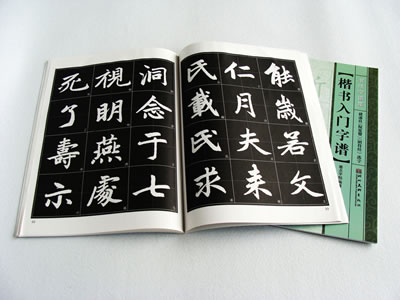 能歲若父
仁月夫来
民載民求
洞念于七
視明燕處
死了壽示
【楷书入门字谱】